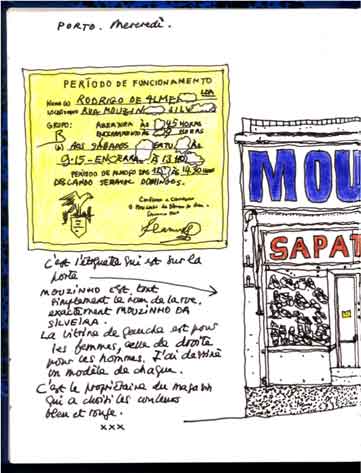 PORTO. Mercredi.
PERÍODO DE FUNCIONAMENTO
RODRIGO DE ALME LDA
RUA MOUZIN SILV
GRUPO: ABERTURA ÀS 45 HORAS
B ENCERRAMENTO ÀS HORAS
(a) AOS SÁBADOS
9.15 - ENCERRA À 13 HO
PERÍODO DE ALMOÇO DAS 14.30 HORAS
DESCANSO SEMANAL DOMINGOS.
MOU
SAPAT
C'est l'étiquette qui est sur la
porte
MOUZINHO est, tout
simplement le nom de la rue,
exactement MOUZINHO DA
SILVEIRA.
La vitrine de gauche est pour
les femmes, celle de droite
pour les hommes. J'ai dessiné
un modèle de chaque.
C'est le propriétaire du magasin
qui a choisi les couleurs
bleu et rouge.
xxx